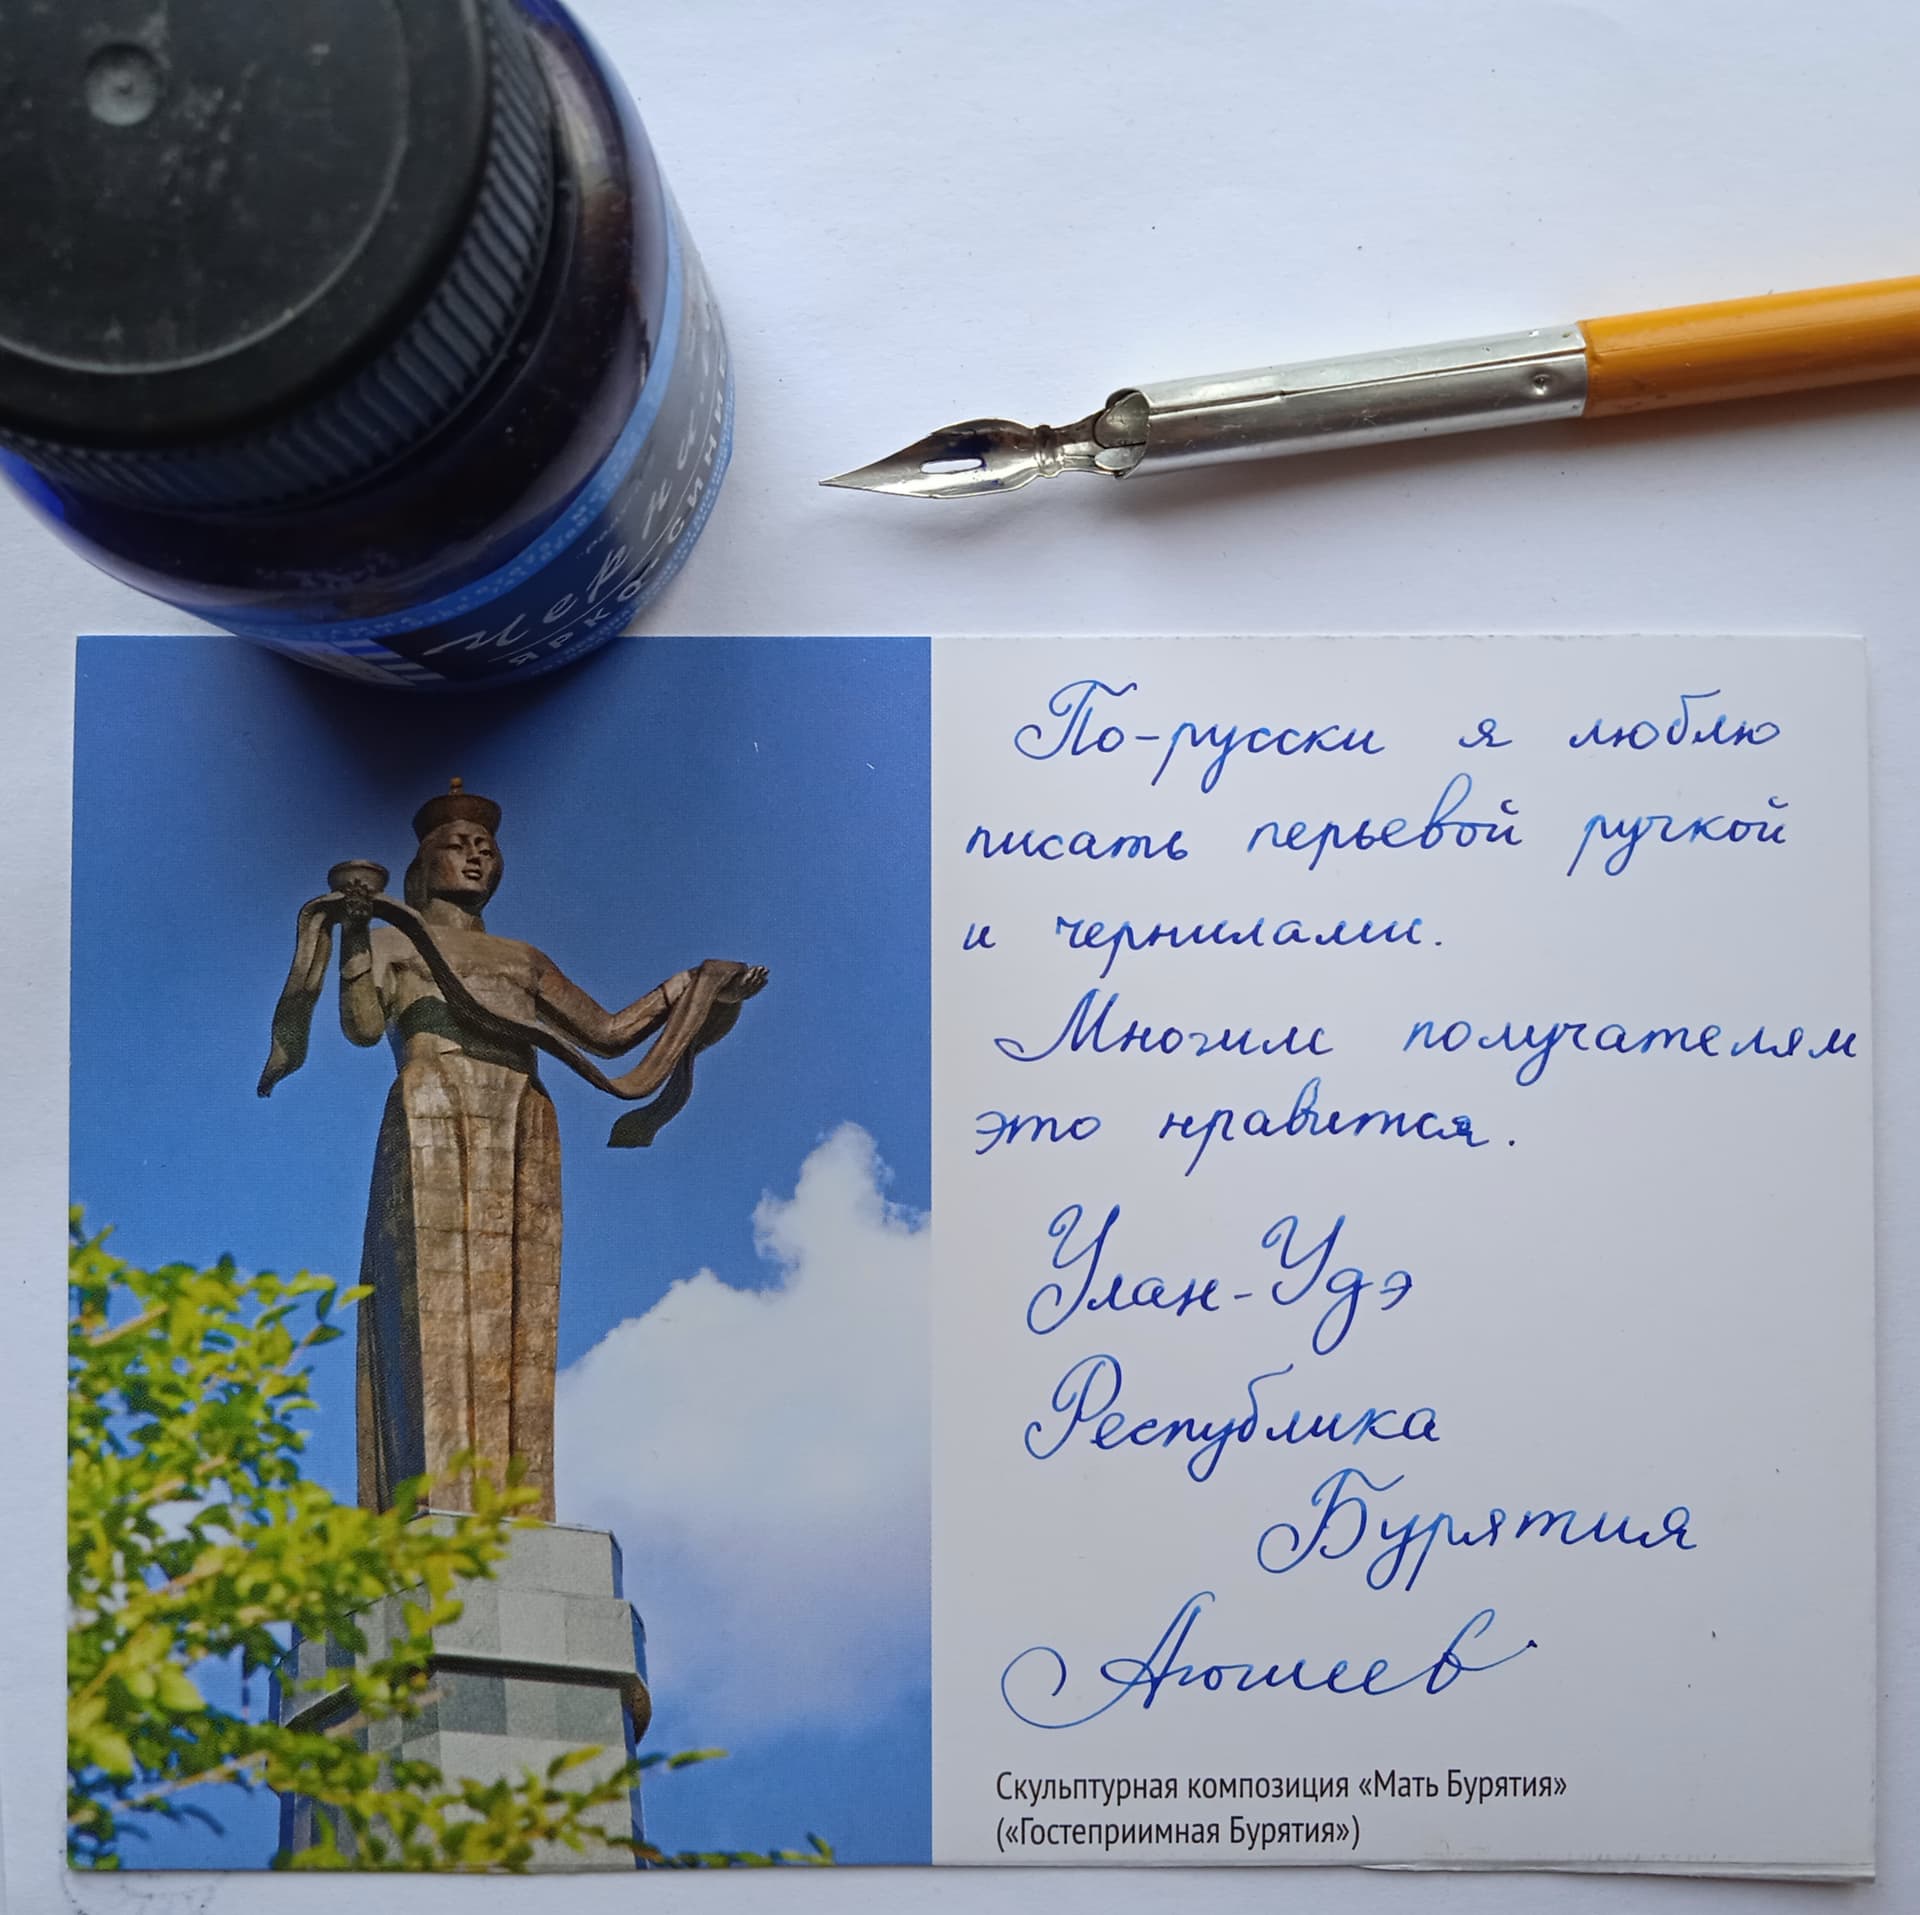 Чернила
ЯРКО-СИНИЕ
По-русски я люблю
писать перьевой ручкой
и чернилами.
Многим получателям
это нравится.
Улан-Удэ
Республика
Бурятия
Аюшеев
Скульптурная композиция «Мать Бурятия»
(«Гостеприимная Бурятия»)